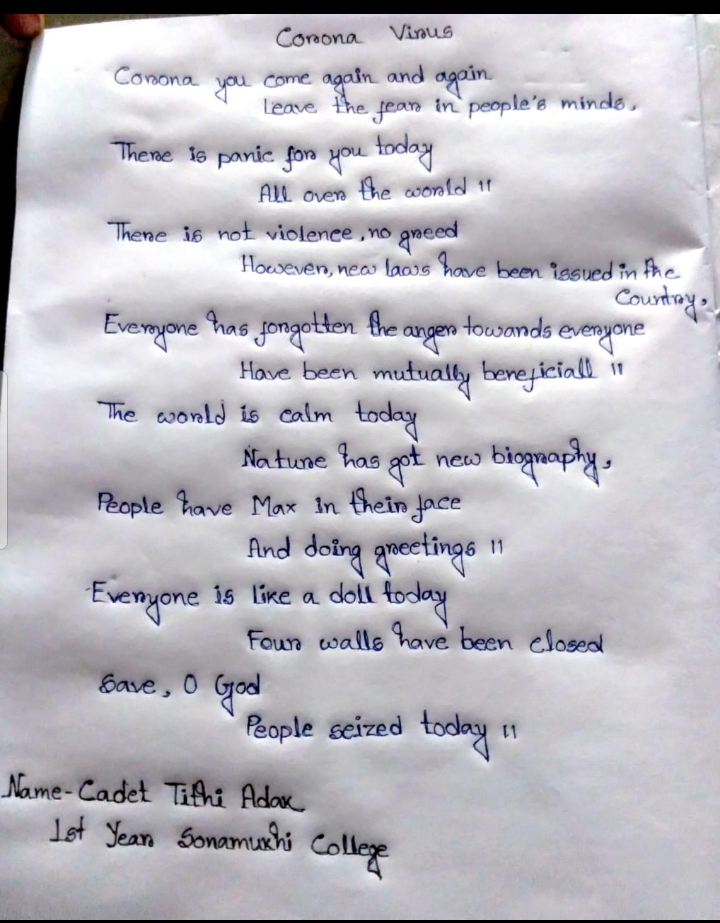 Corona Virus
Corona you come again and again
Leave the fear in people's minds,
There is panic for you today
All over the world ॥
There is not violence, no greed
However, new laws have been issued in the
Country,
Everyone has forgotten the anger towards everyone
Have been mutually beneficiall ॥
The world is calm today
Nature has got new biography,
People have Max in their face
And doing greetings ॥
Everyone is like a doll today
Four walls have been closed
Save, O God
People seized today ॥
Name-Cadet Tithi Adak
1st Year Sonamukhi College